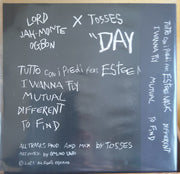 LORD
JAH-MONTE
OGBON
X TOSSES
"DAY
TUTTO CON i PIEDI
I WANNA FLY
MUTUAL
DIFFERENT
TO FIND
ALL TRACKS PROD AND MIX by TOSSES
ARTWORK by
TUTTO CON i PIEDI
I WANNA FLY
MUTUAL
DIFFERENT
TO FIND